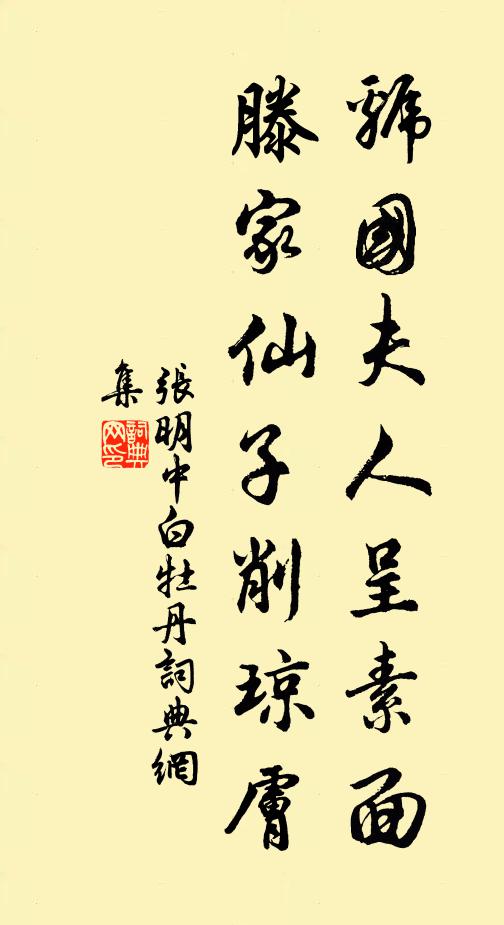 虢國夫人呈素面
滕家仙子削琼膚
張明中白牡丹詞典網
集
詞典網印